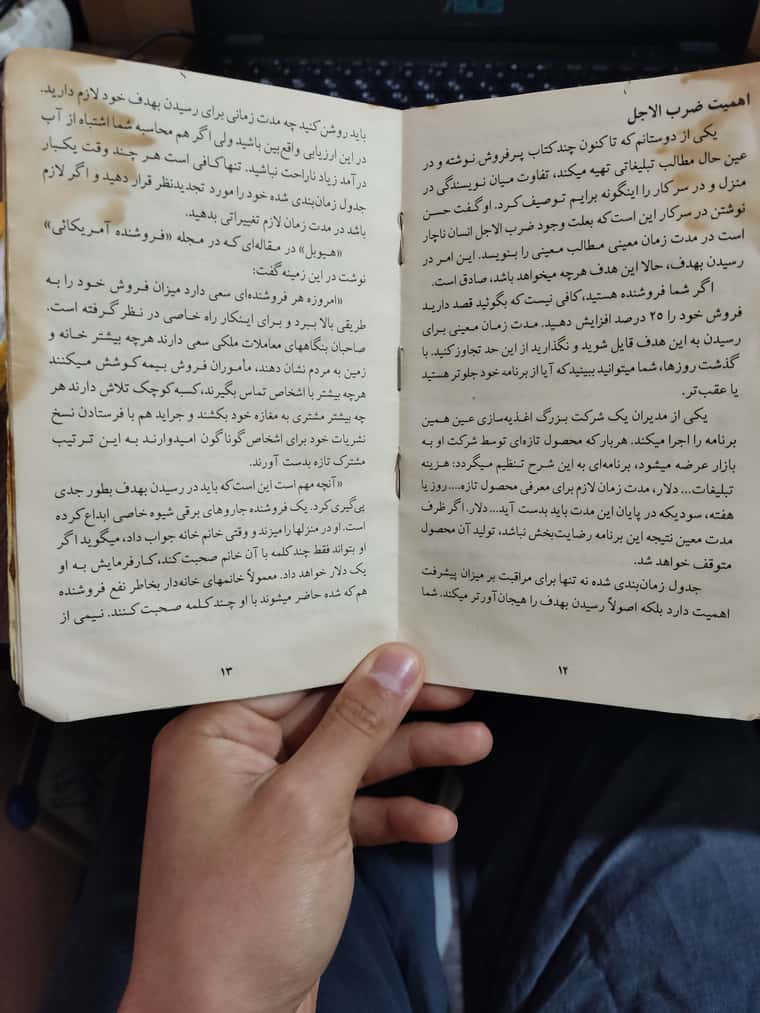 ASUS
اهمیت ضرب الاجل
یکی از دوستانم که تا کنون چند کتاب پرفروش نوشته و در
عین حال مطالب تبلیغاتی تهیه میکند، تفاوت میان نویسندگی در
منزل و در سر کار را اینگونه برایم توصیف کرد. او گفت حسن
نوشتن در سر کار این است که بعلت وجود ضرب الاجل انسان ناچار
است در مدت زمان معینی مطالب معینی را بنویسد. این امر در
رسیدن بهدف، حالا این هدف هرچه میخواهد باشد، صادق است.
اگر شما فروشنده هستید، کافی نیست که بگوئید قصد دارید
فروش خود را ۲۵ درصد افزایش دهید. مدت زمان معینی برای
رسیدن به این هدف قایل شوید و نگذارید از این حد تجاوز کنید. با
گذشت روزها، شما میتوانید ببینید که آیا از برنامه خود جلوتر هستید
یا عقب‌تر.
یکی از مدیران یک شرکت بزرگ اغذیه‌سازی عین همین
برنامه را اجرا میکند. هربار که محصول تازه‌ای توسط شرکت او به
بازار عرضه میشود، برنامه‌ای به این شرح تنظیم میگردد: هزینه
تبلیغات... دلار، مدت زمان لازم برای معرفی محصول تازه.... روز یا
هفته، سودیکه در پایان این مدت باید بدست آید... دلار. اگر ظرف
مدت معین نتیجه این برنامه رضایت‌بخش نباشد، تولید آن محصول
متوقف خواهد شد.
جدول زمان‌بندی شده نه تنها برای مراقبت بر میزان پیشرفت
اهمیت دارد بلکه اصولاً رسیدن بهدف را هیجان‌آورتر میکند. شما
۱۲
باید روشن کنید چه مدت زمانی برای رسیدن بهدف خود لازم دارید.
در این ارزیابی واقع‌بین باشید ولی اگر هم محاسبه شما اشتباه از آب
درآمد زیاد ناراحت نباشید. تنها کافی است هر چند وقت یکبار
جدول زمان‌بندی شده خود را مورد تجدیدنظر قرار دهید و اگر لازم
باشد در مدت زمان لازم تغییراتی بدهید.
«هیوبل» در مقاله‌ای که در مجله «فروشنده آمریکائی»
نوشت در این زمینه گفت:
«امروزه هر فروشنده‌ای سعی دارد میزان فروش خود را به
طریقی بالا ببرد و برای اینکار راه خاصی در نظر گرفته است.
صاحبان بنگاههای معاملات ملکی سعی دارند هرچه بیشتر خانه و
زمین به مردم نشان دهند، مأموران فروش بیمه کوشش میکنند
هرچه بیشتر با اشخاص تماس بگیرند، کسبه کوچک تلاش دارند هر
چه بیشتر مشتری به مغازه خود بکشند و جراید هم با فرستادن نسخ
نشریات خود برای اشخاص گوناگون امیدوارند به این ترتیب
مشترک تازه بدست آورند.
«آنچه مهم است این است که باید در رسیدن بهدف بطور جدی
پی‌گیری کرد. یک فروشنده جاروهای برقی شیوه خاصی ابداع کرده
است. او در منزلها را میزند و وقتی خانم خانه جواب داد، میگوید اگر
او بتواند فقط چند کلمه با آن خانم صحبت کند، کارفرمایش به او
یک دلار خواهد داد. معمولاً خانمهای خانه‌دار بخاطر نفع فروشنده
هم که شده حاضر میشوند با او چند کلمه صحبت کنند. نیمی از
۱۳